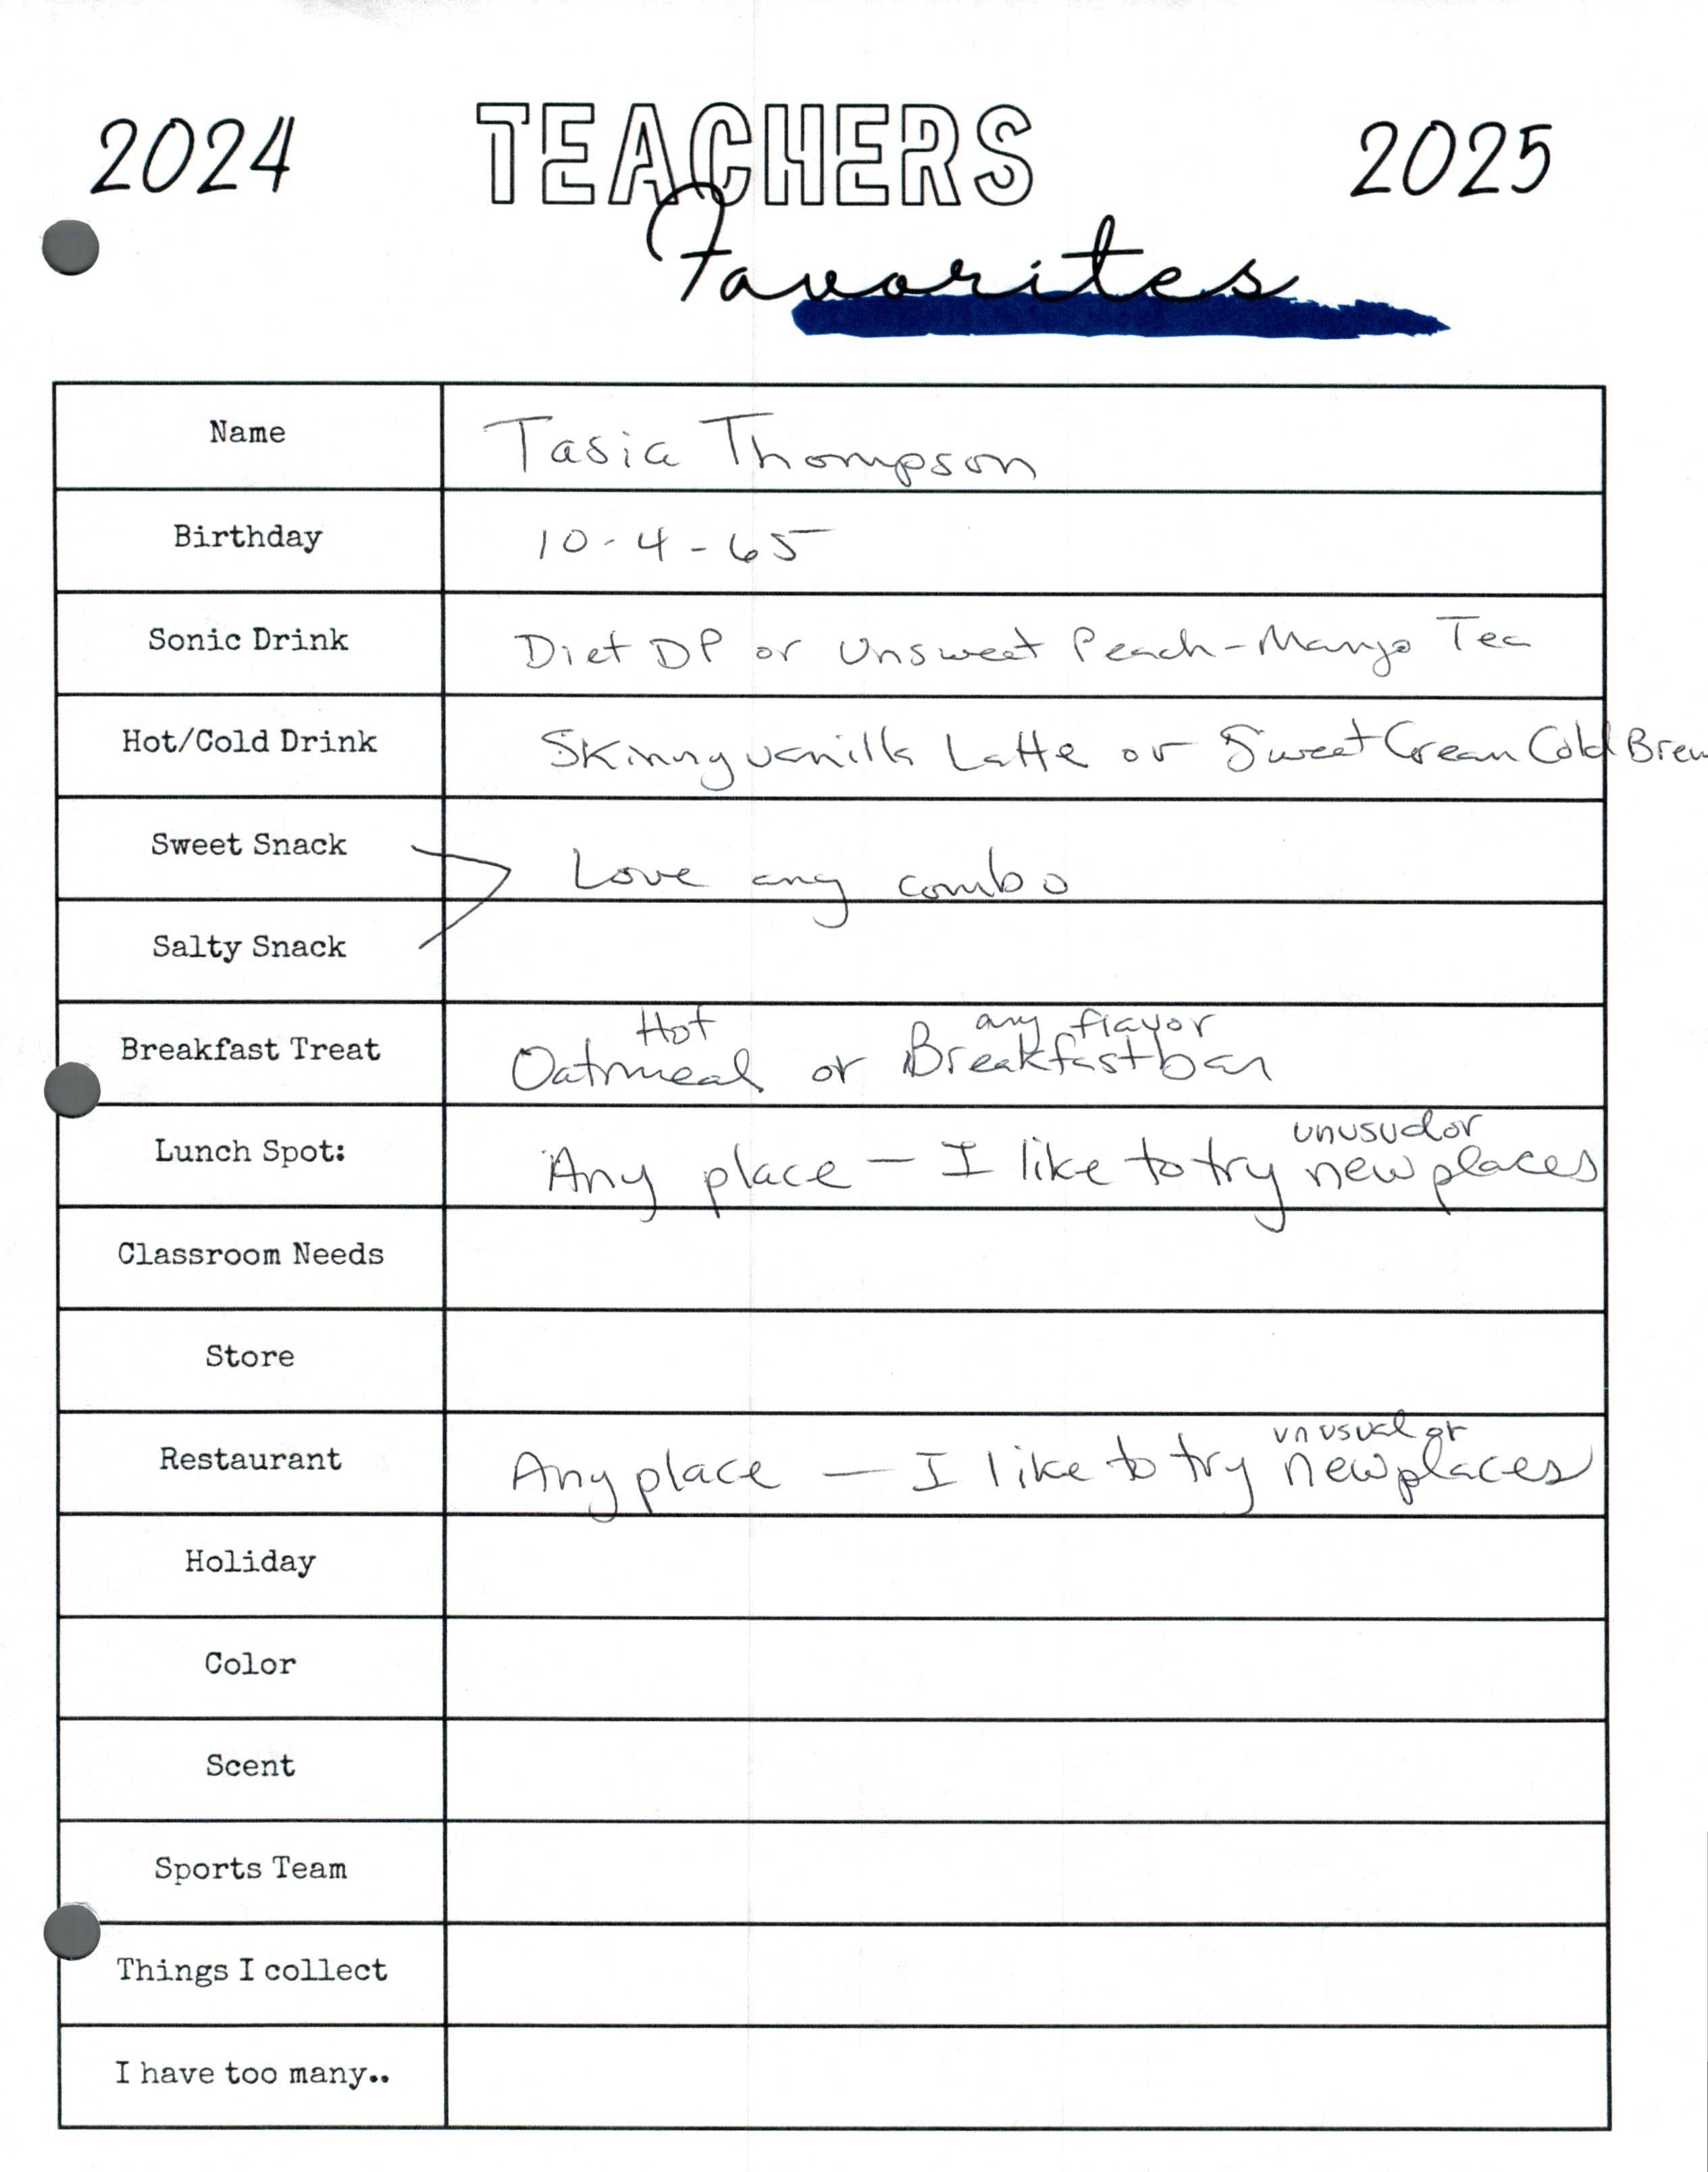 2024 TEACHERS 2025
Favorites
Name Tasia Thompson
Birthday 10-4-65
Sonic Drink Diet DP or Unsweet Peach-Mango Tea
Hot/Cold Drink Skinny vanilla Latte or Sweet Cream Cold Brew
Sweet Snack
Love any combo
Salty Snack
Hot any flavor
Breakfast Treat Oatmeal or Breakfast bar
unusual or
Lunch Spot: Any place — I like to try new places
Classroom Needs
Store
unusual or
Restaurant Any place — I like to try new places
Holiday
Color
Scent
Sports Team
Things I collect
I have too many..